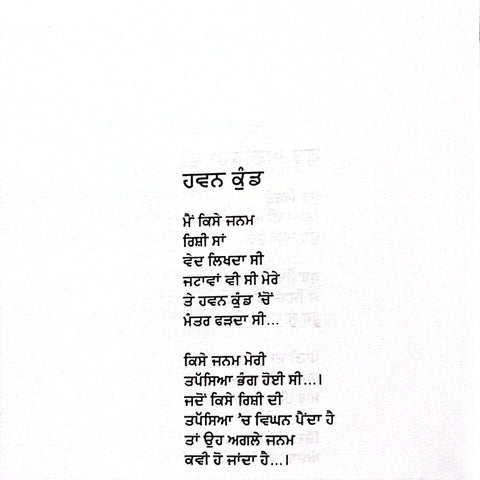 ਹਵਨ ਕੁੰਡ
ਮੈਂ ਕਿਸੇ ਜਨਮ
ਰਿਸ਼ੀ ਸਾਂ
ਵੇਦ ਲਿਖਦਾ ਸੀ
ਜਟਾਵਾਂ ਵੀ ਸੀ ਮੇਰੇ
ਤੇ ਹਵਨ ਕੁੰਡ 'ਚੋਂ
ਮੰਤਰ ਫੜਦਾ ਸੀ...
ਕਿਸੇ ਜਨਮ ਮੇਰੀ
ਤਪੱਸਿਆ ਭੰਗ ਹੋਈ ਸੀ...।
ਜਦੋਂ ਕਿਸੇ ਰਿਸ਼ੀ ਦੀ
ਤਪੱਸਿਆ 'ਚ ਵਿਘਨ ਪੈਂਦਾ ਹੈ
ਤਾਂ ਉਹ ਅਗਲੇ ਜਨਮ
ਕਵੀ ਹੋ ਜਾਂਦਾ ਹੈ...।